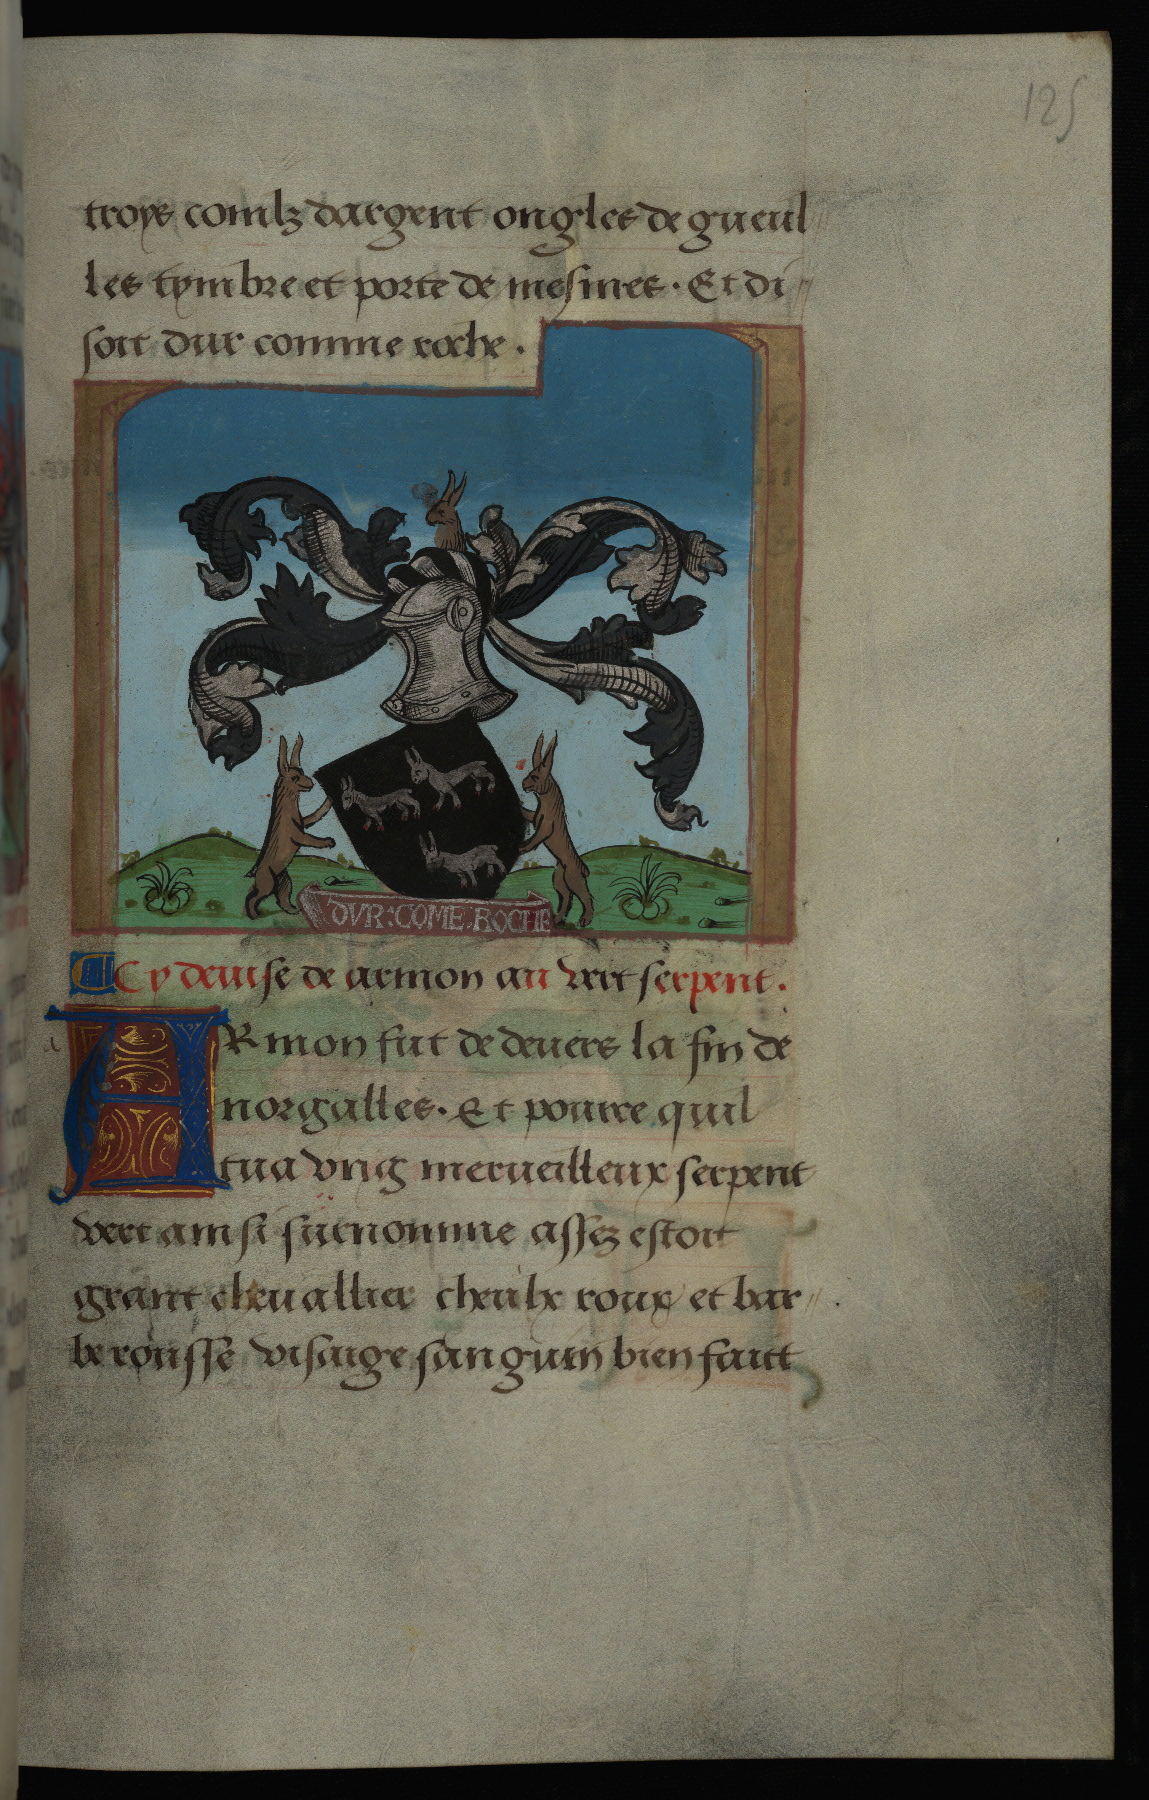 125
troys conilz dargent ongles de gueul
les tymbre et porte de mesmes. Et di
soit dur comme roche.
DVR: COME. ROCHE
Cy devise de armon au vert serpent.
a
ARmon fut de devers la fin de
norgalles. Et pource quil
tua vng merveilleux serpent
vert ainsi surnomme assez estoit
grant chevallier cheulx roux et bar
be rousse visaige sanguin bien faict